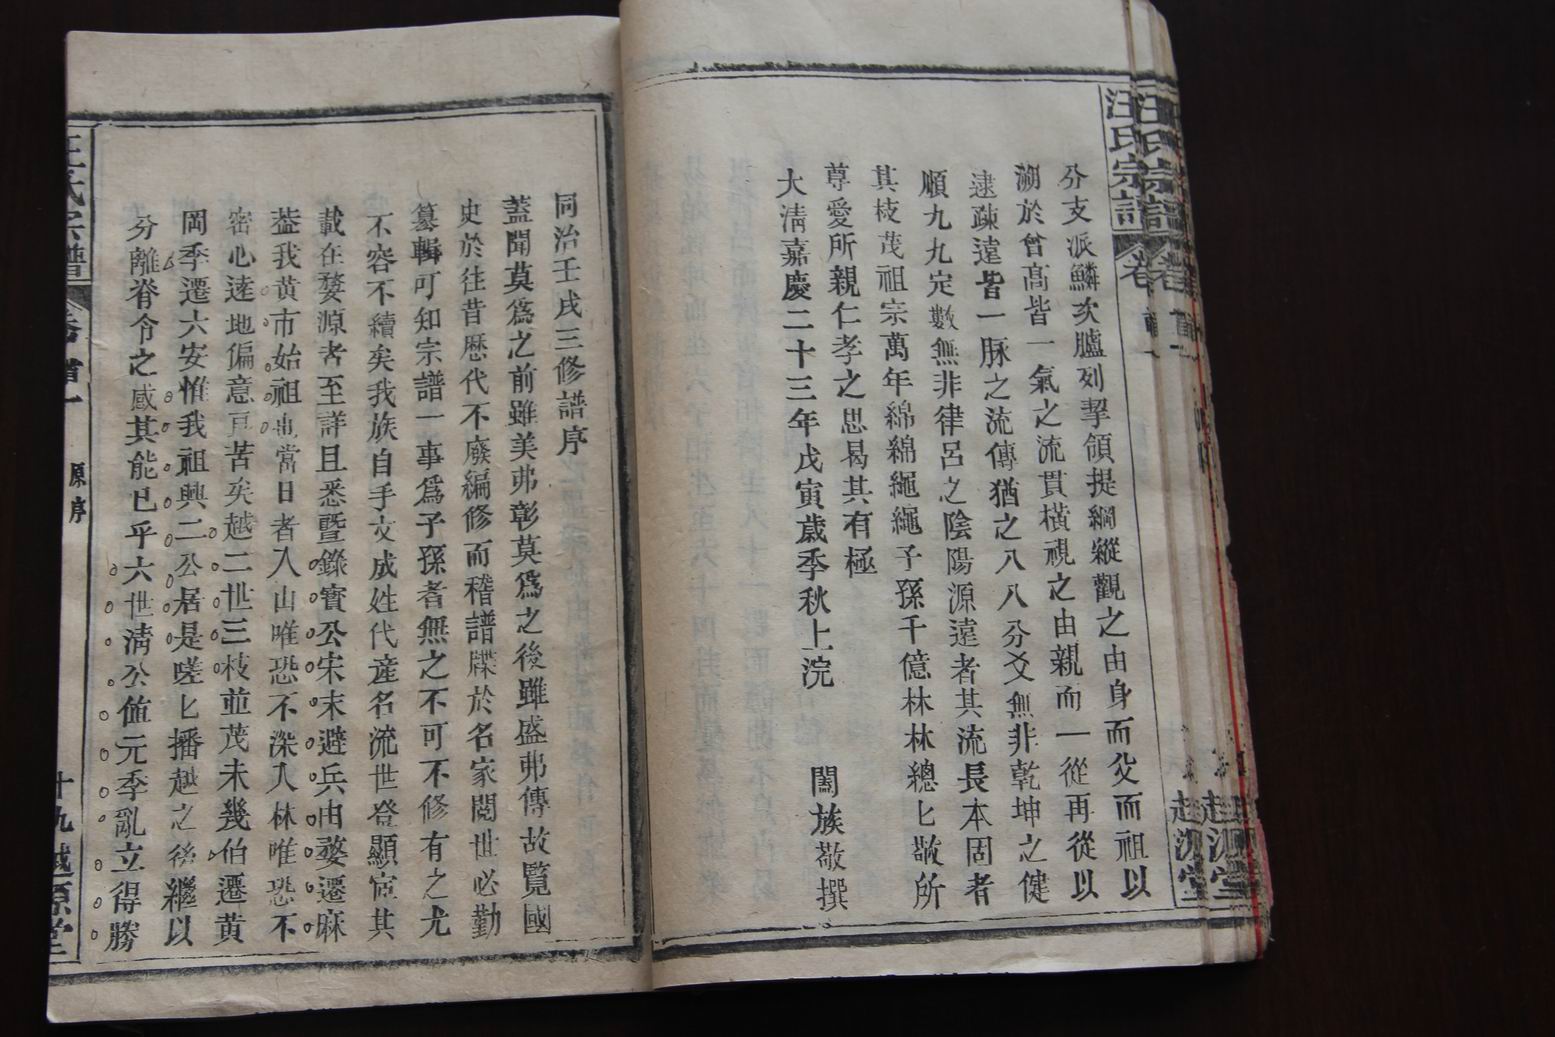 汪氏宗譜
卷首
分支派鱗次臚列挈領提綱縱觀之由身而父而祖以
溯於曾高皆一氣之流貫橫視之由親而一從再從以
逮疎遠皆一脉之流傳猶之八八分爻無非乾坤之健
順九九定數無非律呂之陰陽源遠者其流長本固者
其枝茂祖宗萬年綿綿繩繩子孫千億林林總匕敬所
尊愛所親仁孝之思曷其有極
大淸嘉慶二十三年戊寅歲季秋上浣 闔族敬撰
越源堂
同治壬戌三修譜序
蓋聞莫爲之前雖美弗彰莫爲之後雖盛弗傳故覽國
史於往昔歷代不廢編修而稽譜牒於名家閥世必勤
纂輯可知宗譜一事爲子孫者無之不可不修有之尤
不容不續矣我族自手文成姓代產名流世登顯宦其
載在婺源者至詳且悉曁鑅實公宋末避兵由婺遷麻
葢我黄市始祖也當日者入山唯恐不深入林唯恐不
密心逹地偏意良苦矣越二世三枝並茂未幾伯遷黄
岡季遷六安惟我祖興二公居是嗟匕播越之後繼以
分離脊令之感其能已乎六世淸公値元季亂立得勝
汪氏宗譜
卷首一
原序
十九 越源堂